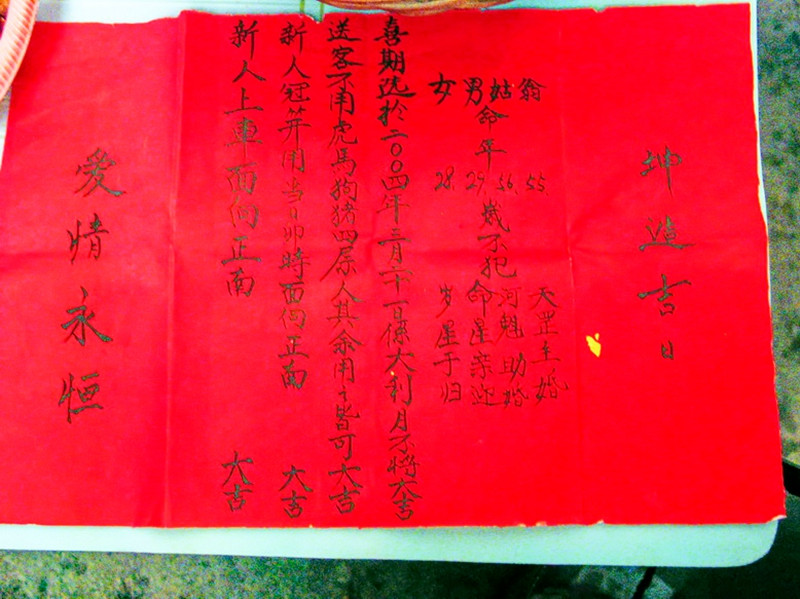 坤造吉日
翁 55 天罡主婚
姑 56 河魁助婚
命年 歲不犯命星亲迎
男 29
女 28 岁星于归
喜期选於二〇〇四年三月六十一日係大利月不將大吉
送客不用虎馬狗猪四属人其余用之皆可大吉
新人冠笄用当日卯時面向正南 大吉
新人上車面向正南 大吉
愛情永恒